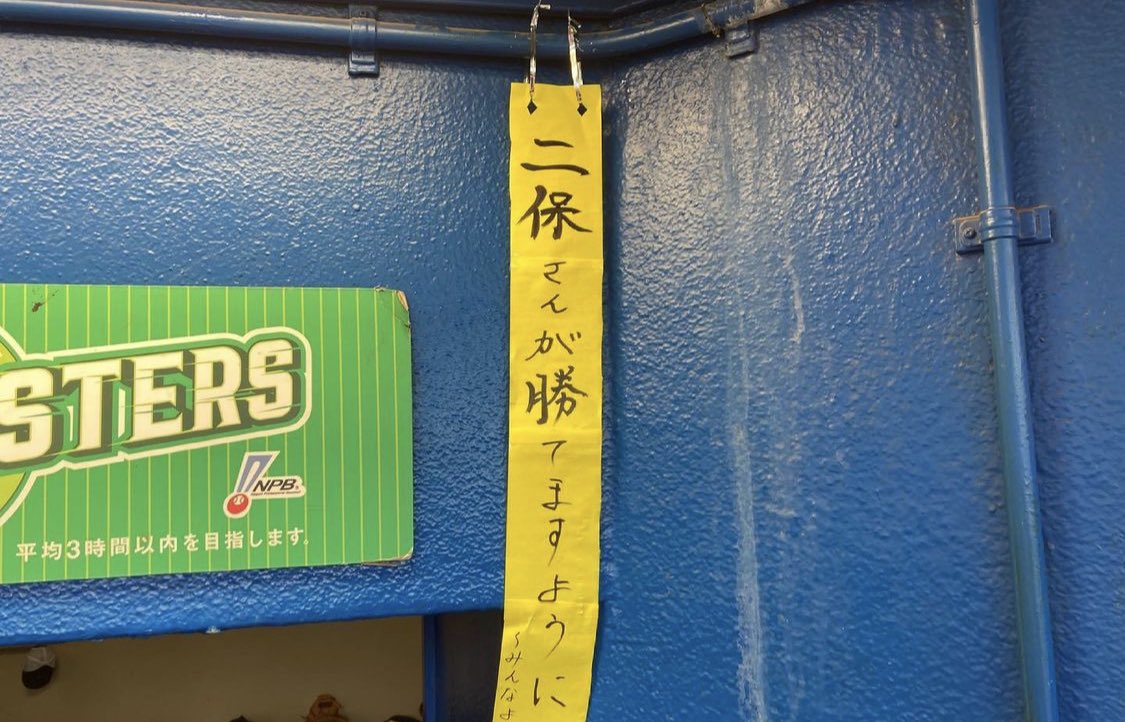 二保さんが勝てますように
〜みんなよ
STERS
NPB
平均3時間以内を目指します。